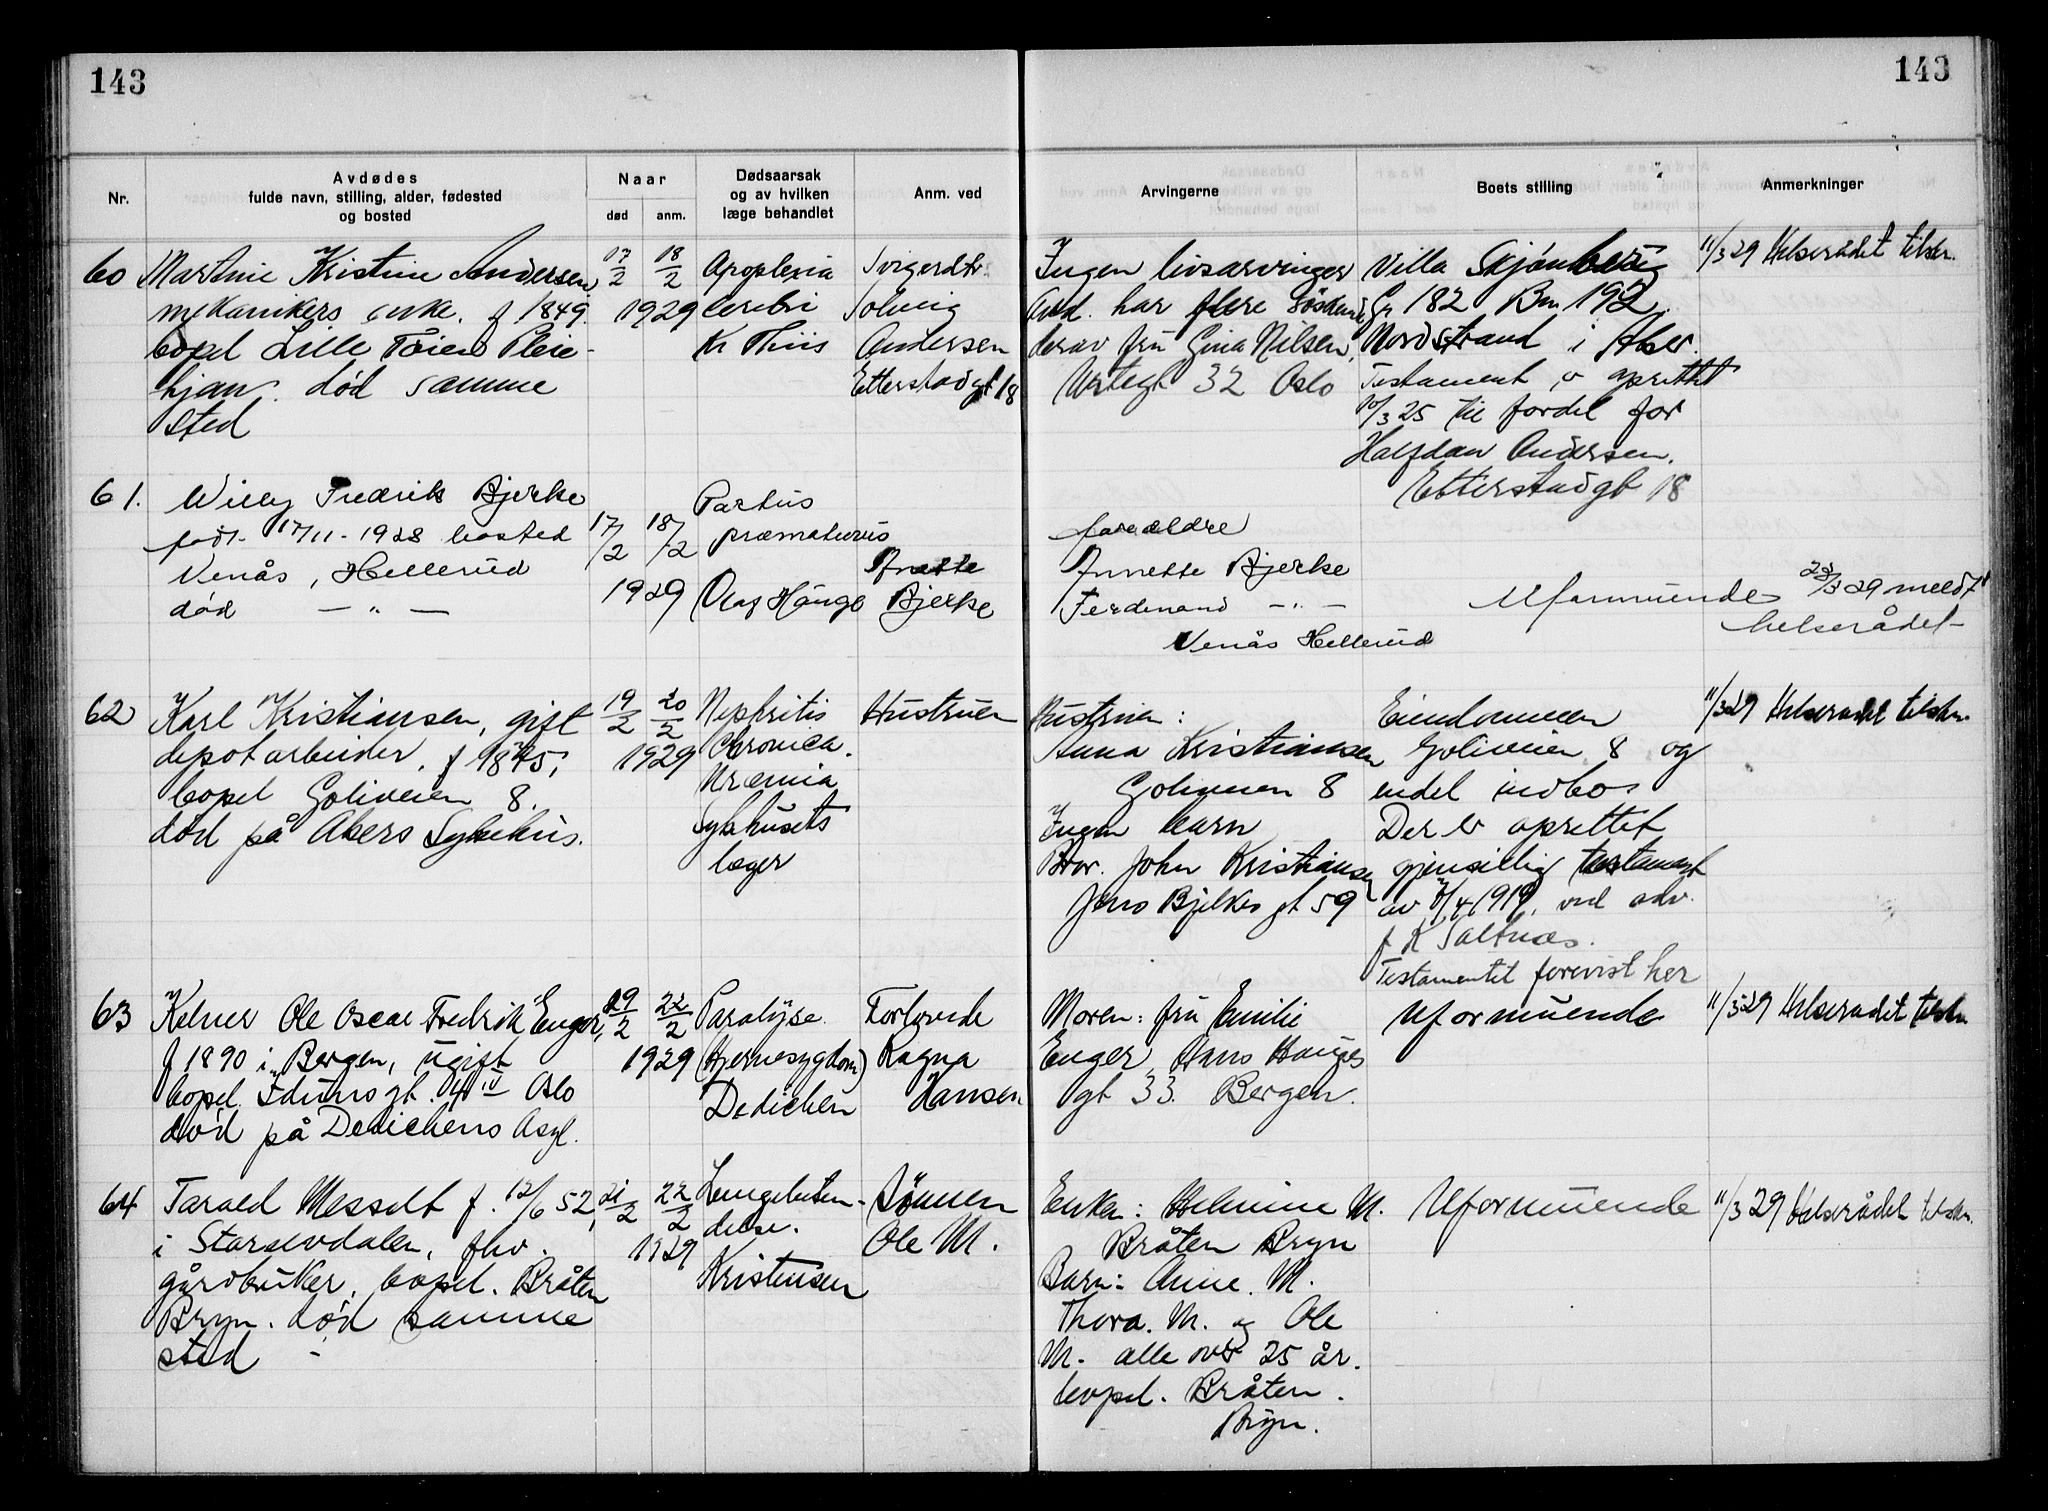 143
143
Nr.
Avdødes
fulde navn, stilling, alder, fødested
og bosted
Naar
død
anm.
Dødsaarsak
og av hvilken
læge behandlet
Anm. ved
Arvingerne
Boets stilling
Anmerkninger
60
Martine Kristine Andersen
mekanikers enke. f 1849.
bopel Lille Tøien Pleie-
hjem. død samme
sted
17/2 18/2
1929
Apoplexia
cerebri
Kr Thiis
Svigerdtr.
Solveig
Andersen
Etterstadgt 18
Ingen livsarvinger
Avd. har flere søskende
derav fru Gina Nilsen,
Urtegt 32 Oslo
Villa Skjønberg
Gr 182 Bm 192.
Nordstrand i Aker.
Testament er oprettet
10/3 25 til fordel for
Halfdan Andersen.
Etterstadgt 18
11/3 29 Helserådet tilskr.
61.
Willy Fredrik Bjerke
født 17/11-1928 bosted
Venås, Hellerud
død — " —
17/2 18/2
1929
Partus
præmaturus
Olaf Hauge
Annette
Bjerke
forældre
Annette Bjerke
Ferdinand — " —
Venås Hellerud
Uformuende
23/3 29 meldt
helserådet
62
Karl Kristiansen, gift
depotarbeider, f 1875,
bopel Goliveien 8.
død på Akers Sykehus.
19/2 20/2
1929
Nephritis
Chronica.
Uræmia
Sykhusets
læger
Hustruen
Hustruen:
Anna Kristiansen
Goliveien 8
Ingen barn
Bror. John Kristiansen
Jens Bjelkes gt 59
Eiendommen
Goliveien 8 og
endel indbo
Der er oprettet
gjensidig testament
av /4 1919, ved adv.
f K Saltnes.
Testamentet forevist her
11/3 29 Helserådet tilskr.
63
Kelner Ole Oscar Fredrik Enger,
f 1890 i Bergen, ugift
bopel Idunsgt. 4 IV Oslo
død på Dedichens Asyl.
19/2 22/2
1929
Paralyse
(Hjernesygdom)
Dedichen
Forlovede
Ragna
Hansen
Moren: fru Emilie
Enger, Hans Hauges
gt 33. Bergen.
Uformuende
11/3 29 Helserådet tilskr.
64
Tarald Messelt f. 12/6 52,
i Storelvdalen, fhv.
gårdbruker, bopel. Bråten
Bryn. død samme
sted -
21/2 22/2
1929
Lungebeten-
delse.
Kristensen
Sønnen
Ole M.
Enken: Helmine M.
Bråten Bryn
Barn: Anne. M.
Thora. M. og Ole
M. alle over 25 år.
bopel. Bråten.
Bryn.
Uformuende
11/3 29 Helserådet tilskr.